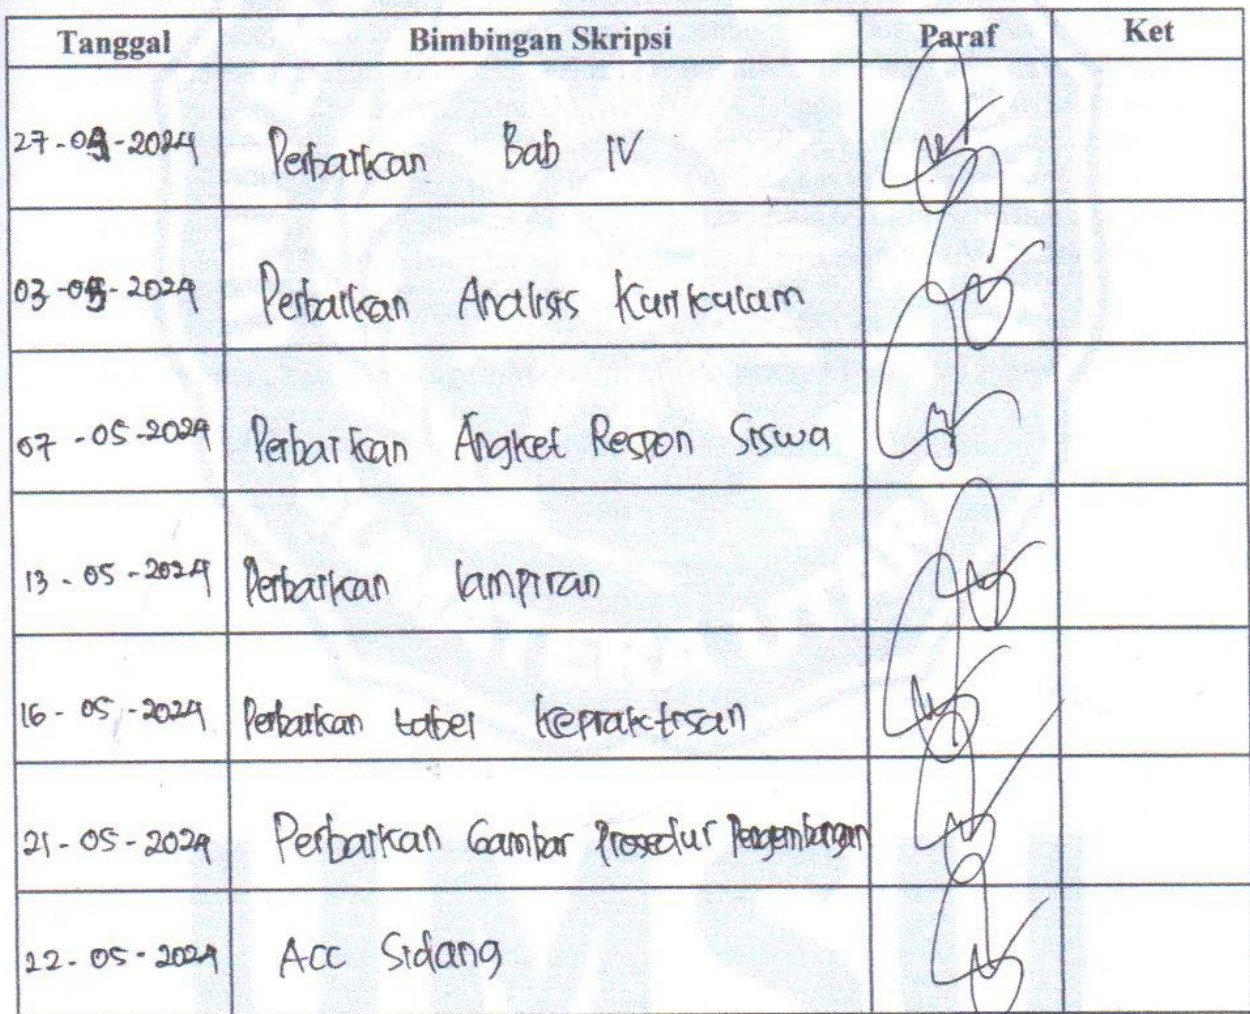 Tanggal Bimbingan Skripsi Paraf Ket
27-04-2024 Perbaikan Bab IV
03-05-2024 Perbaikan Analisis Kurikulum
07-05-2024 Perbaikan Angket Respon Siswa
13-05-2024 Perbaikan lampiran
16-05-2024 Perbaikan tabel kepraktisan
21-05-2024 Perbaikan Gambar Prosedur Pengembangan
22-05-2024 Acc Sidang
UMSU